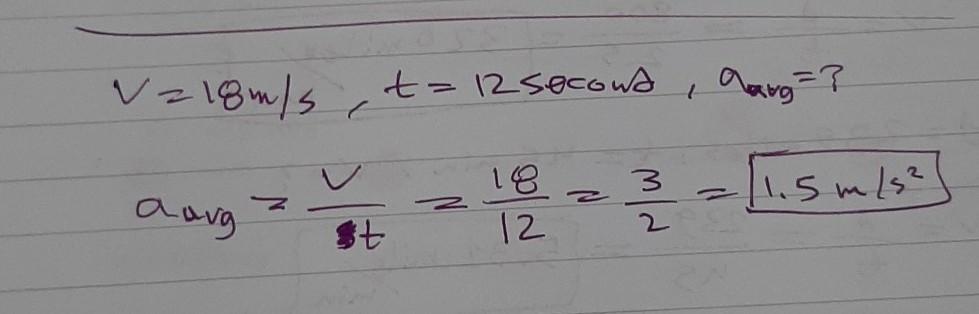 V = 18 m/s , t = 12 second , a avg = ?
a avg = V/t = 18/12 = 3/2 = 1.5 m/s²